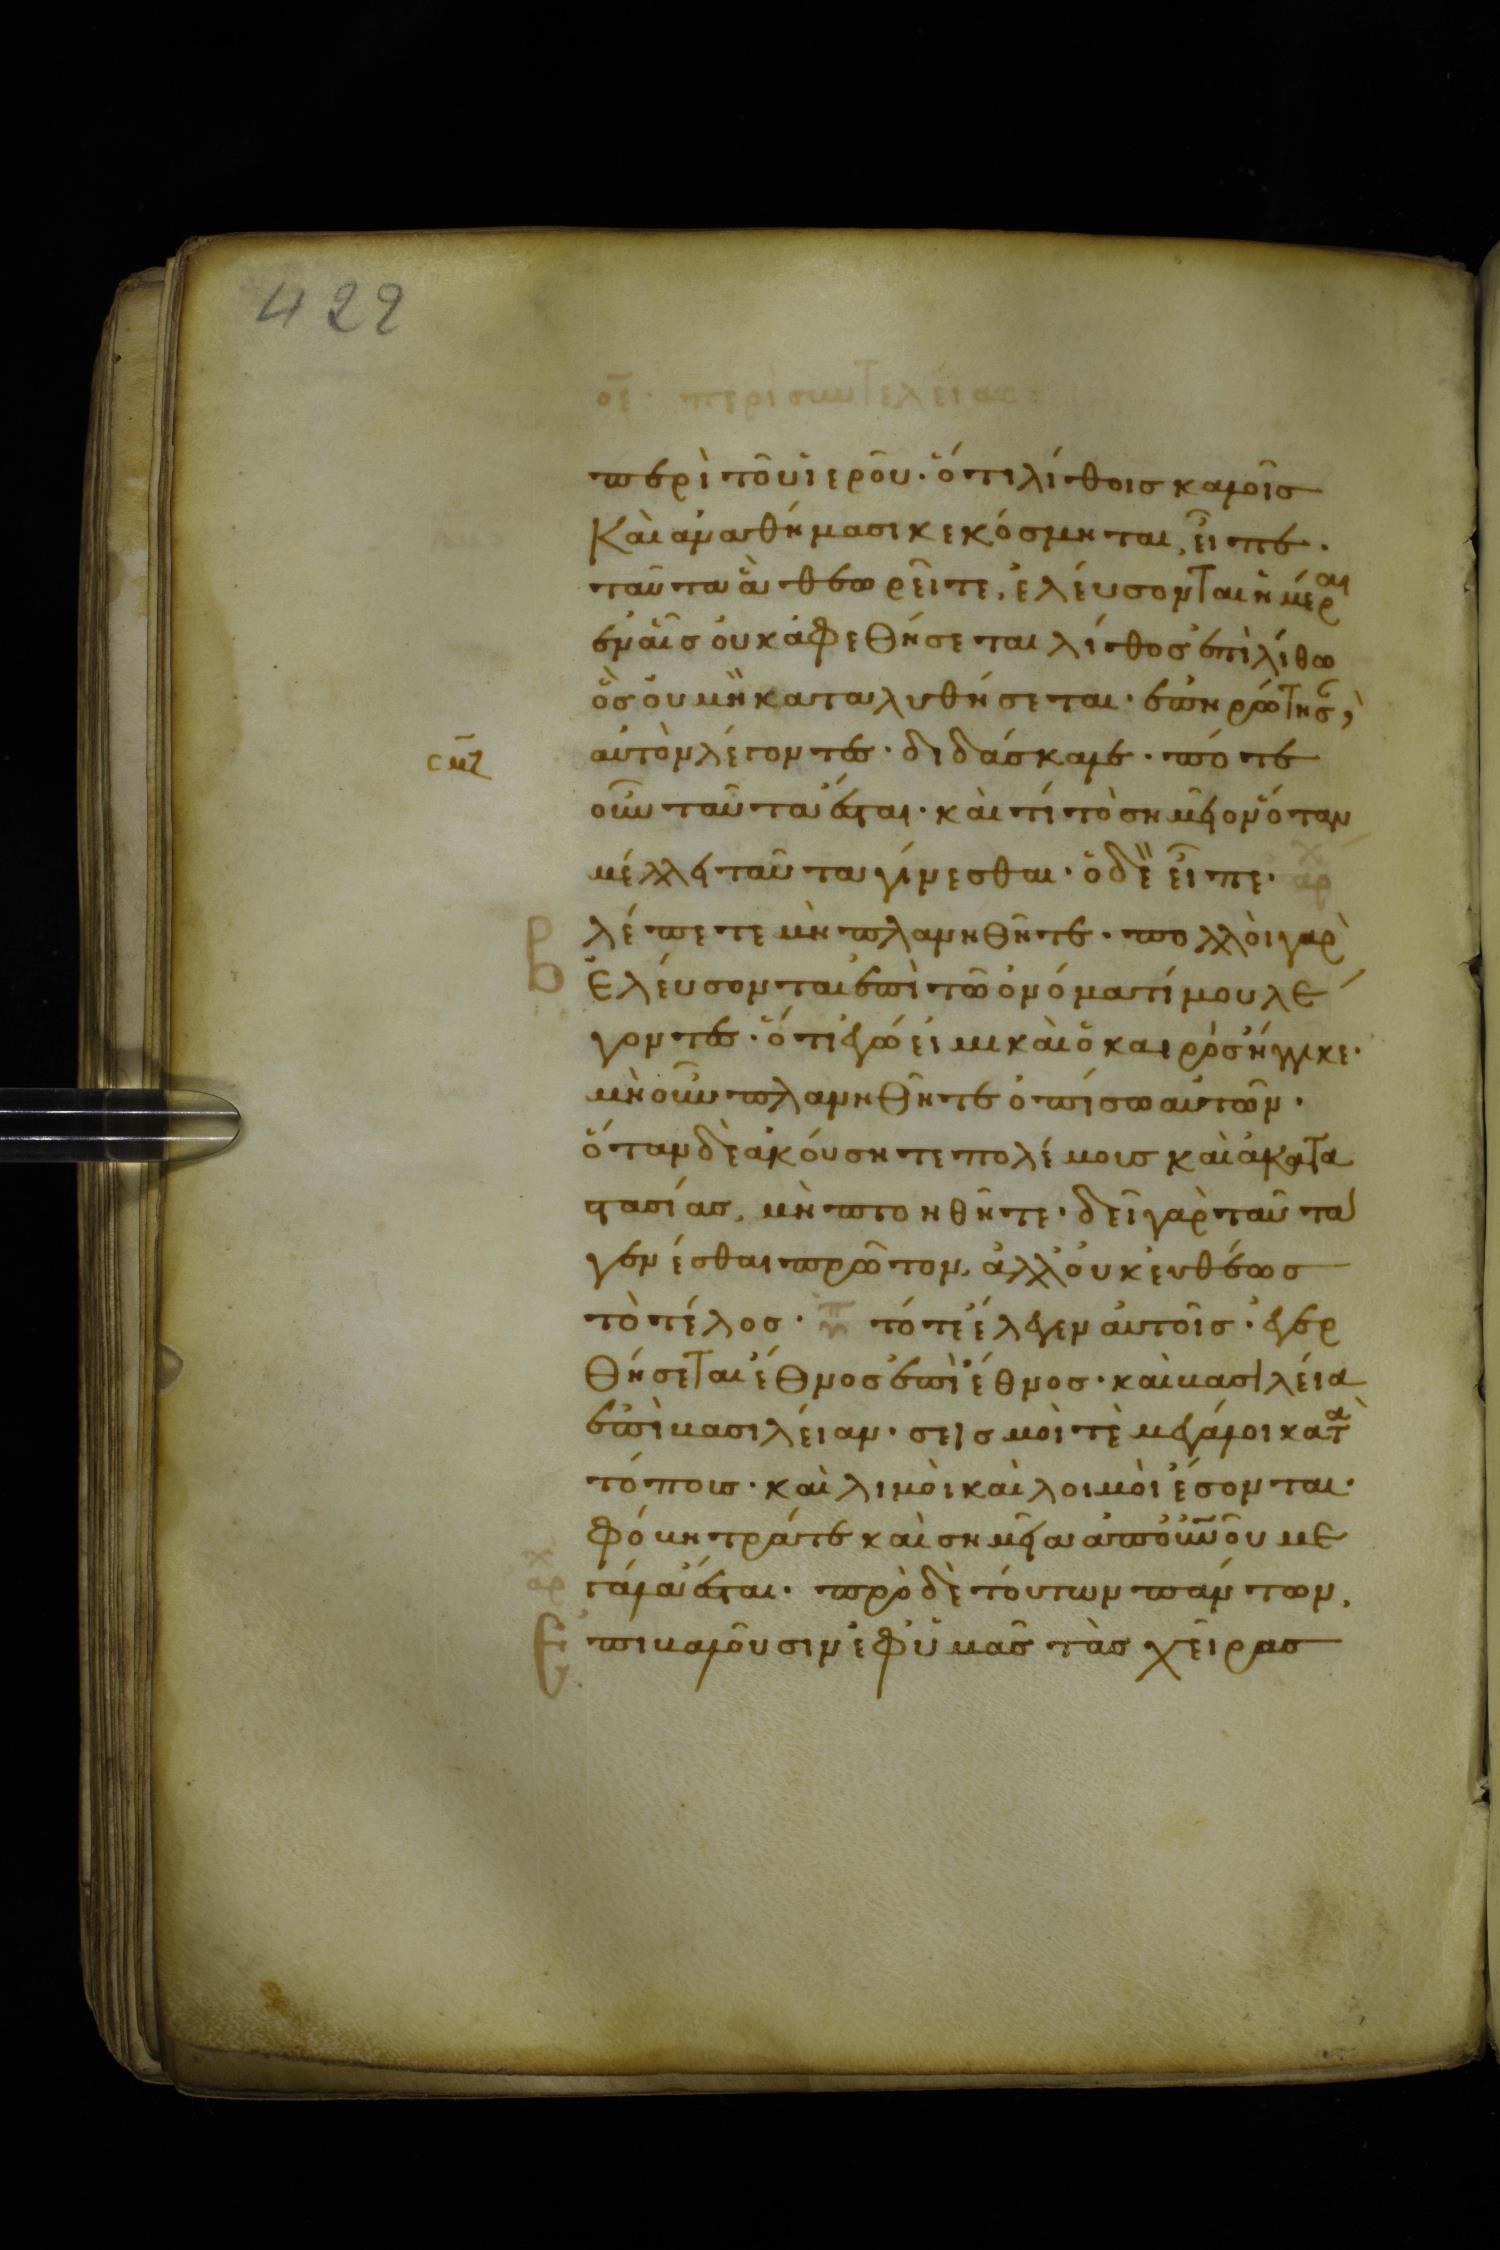 422
οε· περὶ συντελείας
περὶ τοῦ ἱεροῦ· ὅτι λίθοις καλοῖς
Καὶ ἀναθήμασι κεκόσμηται, εἶπε·
ταῦτα ἃ θεωρεῖτε, ἐλεύσονται ἡμέραι
ἐν αἷς οὐκ ἀφεθήσεται λίθος ἐπὶ λίθω
ὃς οὐ μὴ καταλυθήσεται· ἐπηρώτησ(αν) δὲ
αὐτὸν λέγοντες· διδάσκαλε· πότε
σμζ
οὖν ταῦτα ἔσται· καὶ τί τὸ σημεῖον ὅταν
μέλλει ταῦτα γίνεσθαι· ὁ δὲ εἶπε· ἀρχ
Βλέπετε μὴ πλανηθῆτε· πολλοὶ γὰρ
Ἐλεύσονται ἐπὶ τῶ ὀνόματί μου λέ
γοντες· ὅτι ἐγώ εἰμι καὶ ὁ καιρὸς ἤγγικε·
μὴ οὖν πλανηθῆτε ὀπίσω αὐτῶν·
ὅταν δὲ ἀκούσητε πολέμοις καὶ ἀκατα
στασίας, μὴ πτοηθῆτε· δεῖ γὰρ ταῦτα
γενέσθαι πρῶτον, ἀλλ' οὐκ εὐθέως
τὸ τέλος· τότε ἔλεγεν αὐτοῖς· ἐγερ
Θήσεται ἔθνος ἐπὶ ἔθνος· καὶ βασιλεία
ἐπὶ βασιλείαν· σεισμοί τε μεγάλοι κατὰ
τόποις· καὶ λιμοὶ καὶ λοιμοὶ ἔσονται·
Φόβητρά τε καὶ σημεῖα ἀπὸ οὐνοῦ με
γάλα ἔσται· πρὸ δὲ τούτων πάντων,
ἀρχ
Ἐπιβαλοῦσιν ἐφ' ὑμᾶς τὰς χεῖρας